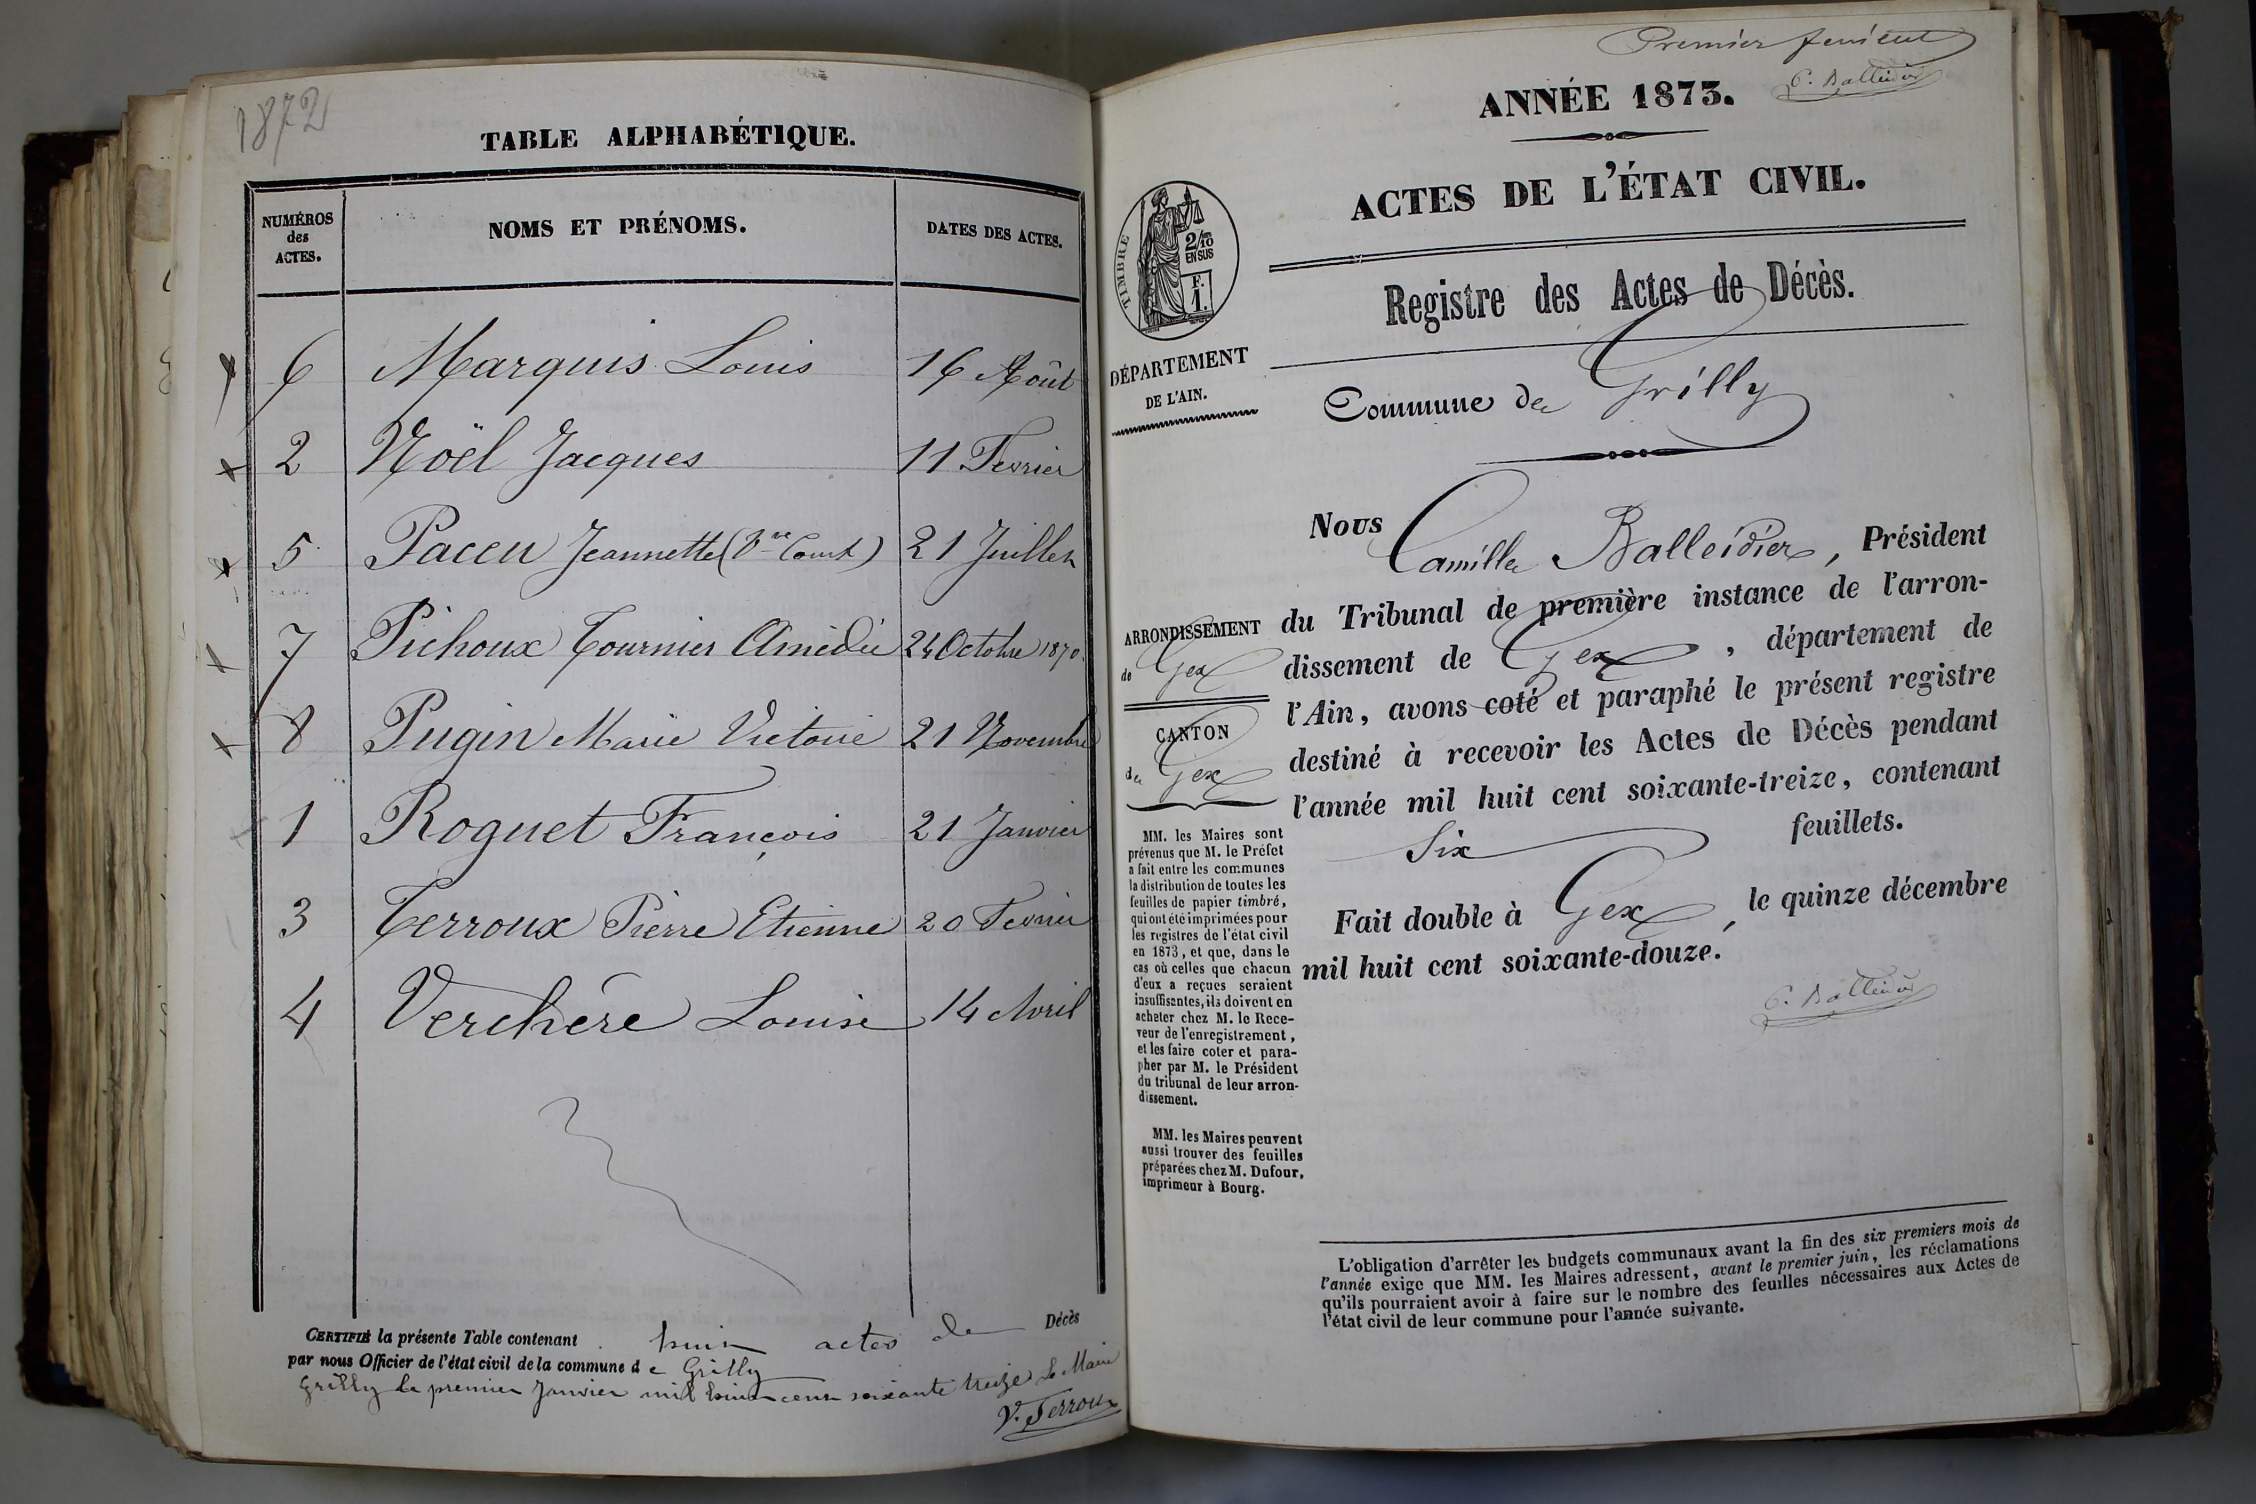 1872
TABLE ALPHABÉTIQUE.
NUMÉROS
des
ACTES.
NOMS ET PRÉNOMS.
DATES DES ACTES.
6 Marquis Louis 16 Août
2 Noël Jacques 11 Fevrier
5 Paccu Jeannette (Vve Court) 21 Juillet
7 Pichoux Tournier Amédée 24 Octobre 1870
8 Pugin Marie Victoire 21 Novembre
1 Roguet François 21 Janvier
3 Terroux Pierre Etienne 20 Fevrier
4 Verchère Louise 14 Avril
CERTIFIÉ la présente Table contenant huit actes de Décès
par nous Officier de l'état civil de la commune de Grilly
Grilly le premier Janvier mil huit cent soixante treize Le Maire
V. Terroux
Premier feuillet
C. Balleidier
ANNÉE 1873.
ACTES DE L'ÉTAT CIVIL.
TIMBRE
2/10
EN SUS
F.
1.
Registre des Actes de Décès.
DÉPARTEMENT
DE L'AIN.
Commune de Grilly
Nous Camille Balleidier, Président
du Tribunal de première instance de l'arron-
dissement de Gex, département de
l'Ain, avons coté et paraphé le présent registre
destiné à recevoir les Actes de Décès pendant
l'année mil huit cent soixante-treize, contenant
Six feuillets.
Fait double à Gex, le quinze décembre
mil huit cent soixante-douze.
C. Balleidier
ARRONDISSEMENT
de Gex
CANTON
de Gex
MM. les Maires sont
prévenus que M. le Préfet
a fait entre les communes
la distribution de toutes les
feuilles de papier timbré,
qui ont été imprimées pour
les registres de l'état civil
en 1873, et que, dans le
cas où celles que chacun
d'eux a reçues seraient
insuffisantes, ils doivent en
acheter chez M. le Rece-
veur de l'enregistrement,
et les faire coter et para-
pher par M. le Président
du tribunal de leur arron-
dissement.
MM. les Maires peuvent
aussi trouver des feuilles
préparées chez M. Dufour,
imprimeur à Bourg.
L'obligation d'arrêter les budgets communaux avant la fin des six premiers mois de
l'année exige que MM. les Maires adressent, avant le premier juin, les réclamations
qu'ils pourraient avoir à faire sur le nombre des feuilles nécessaires aux Actes de
l'état civil de leur commune pour l'année suivante.